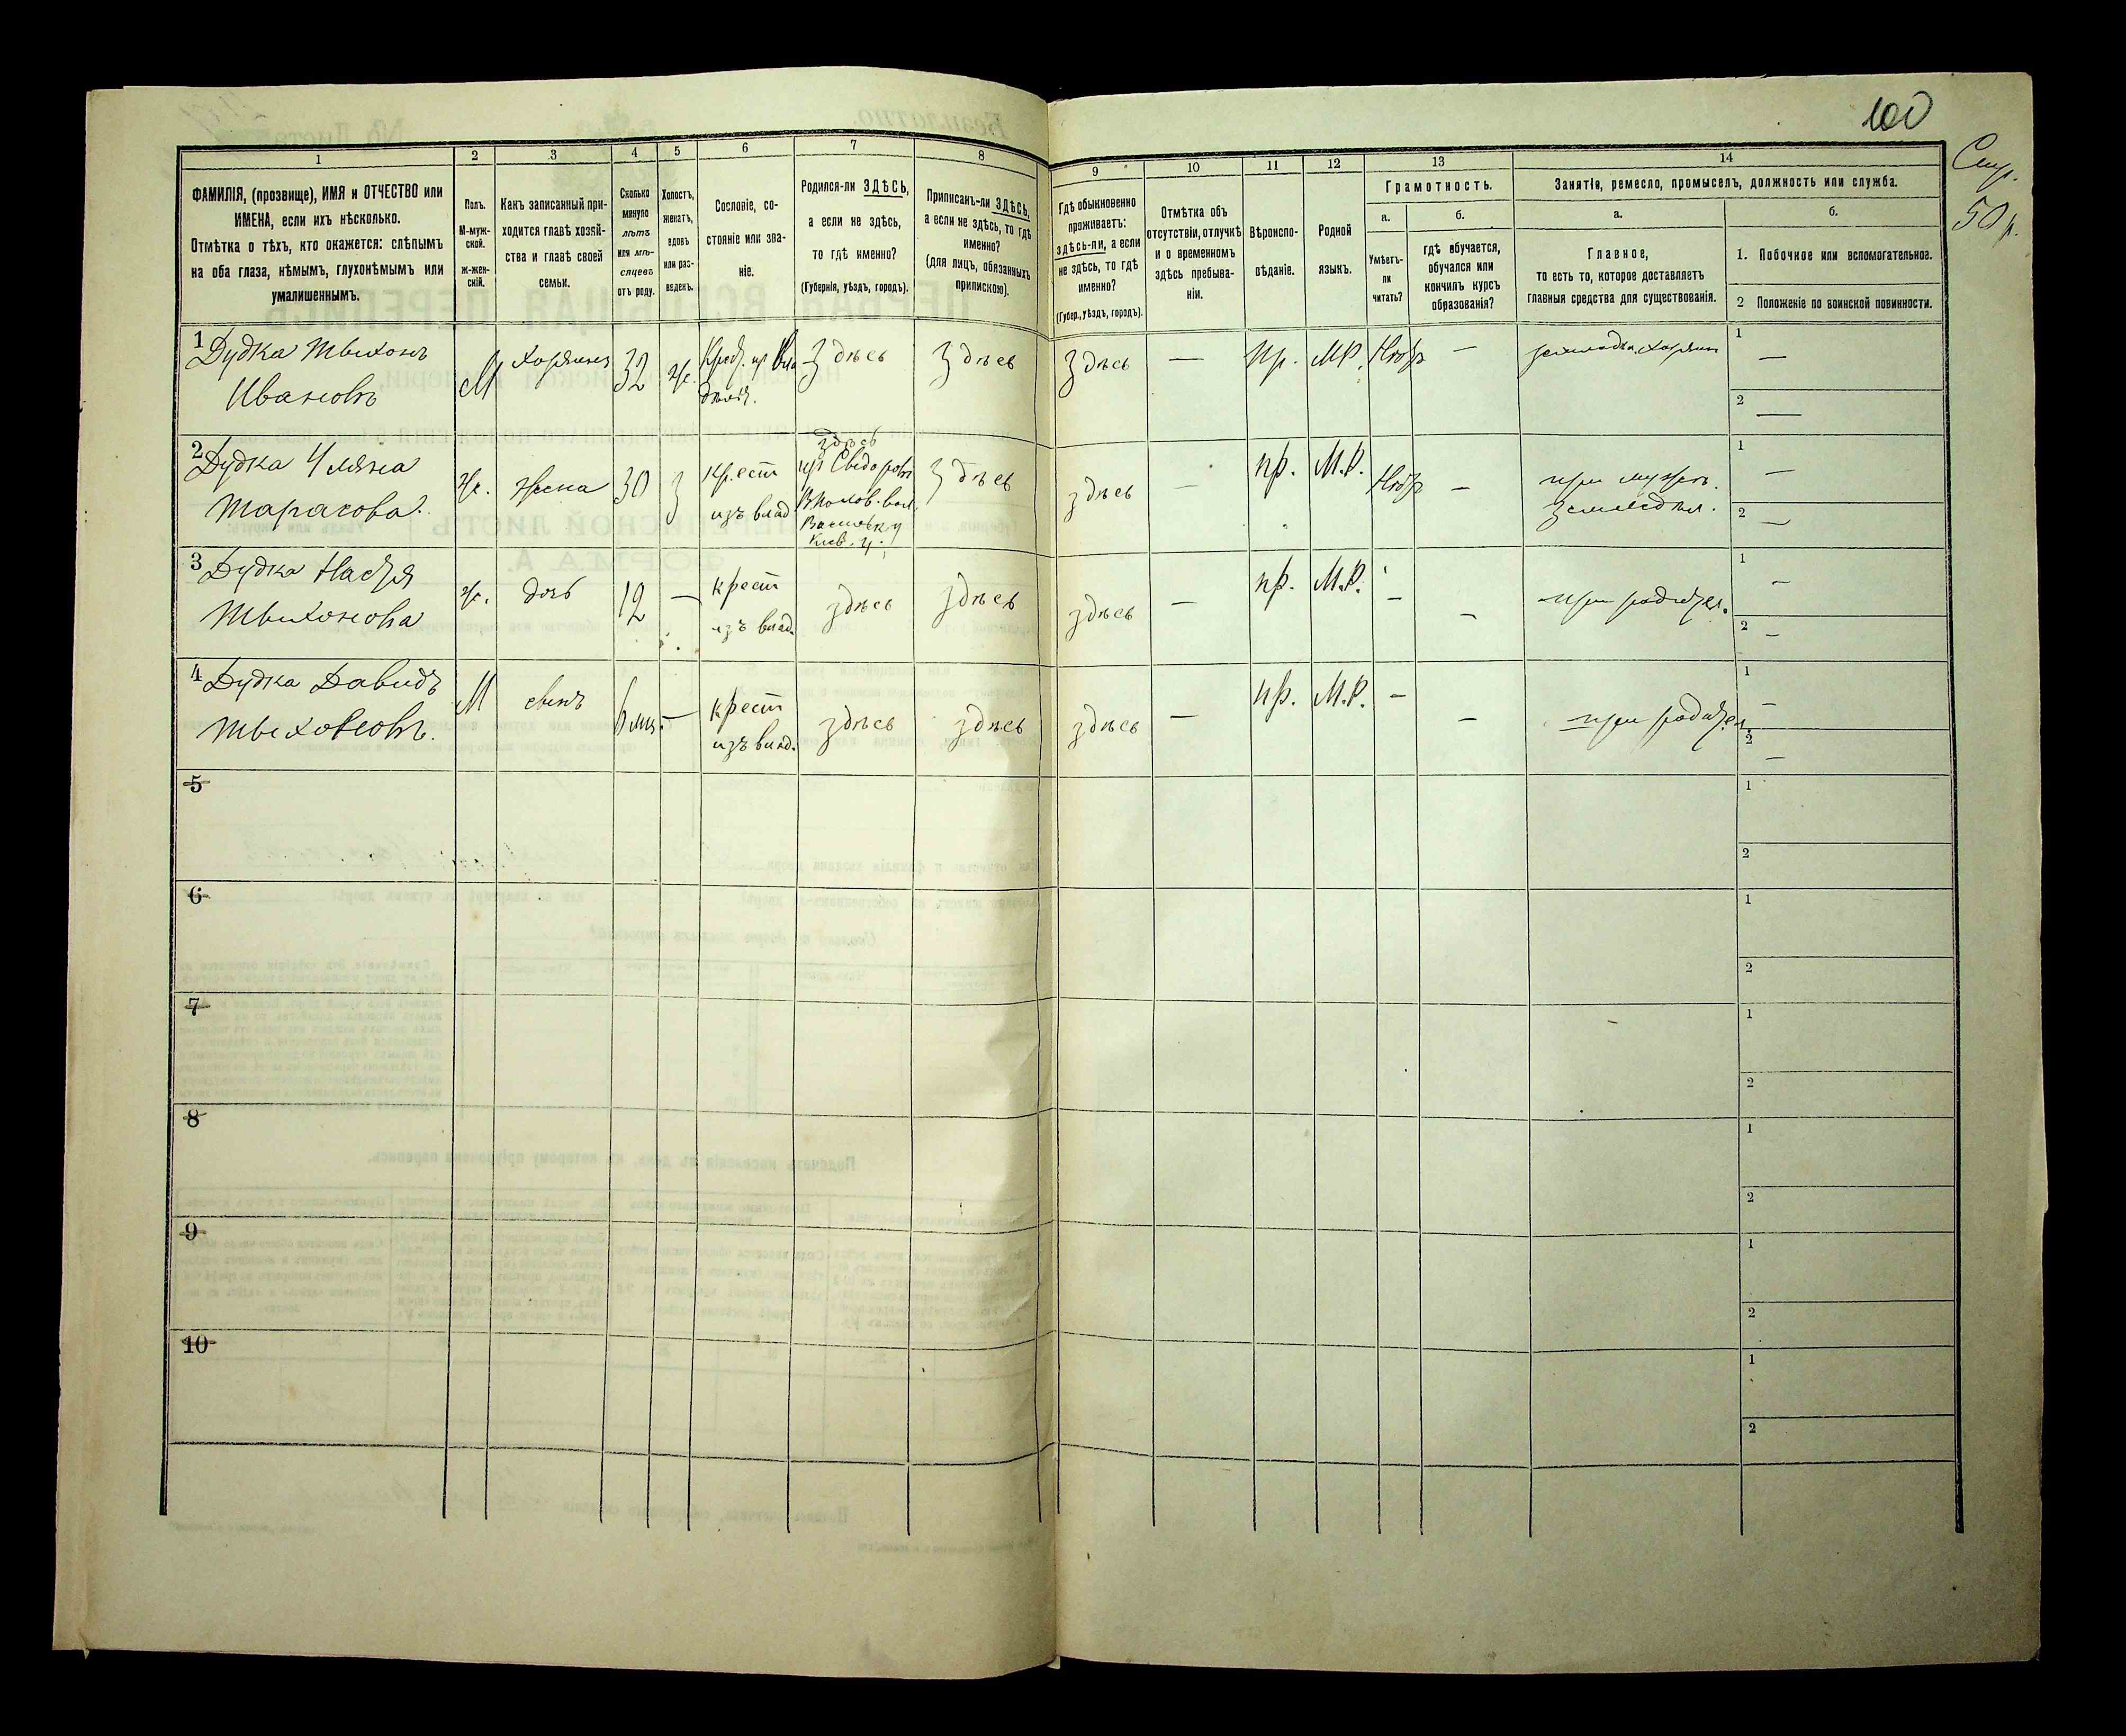 100
Стр.
50 р.
1
2
3
4
5
6
7
8
9
10
11
12
13
14
ФАМИЛІЯ, (прозвище), ИМЯ и ОТЧЕСТВО или
ИМЕНА, если ихъ нѣсколько.
Отмѣтка о тѣхъ, кто окажется: слѣпымъ
на оба глаза, нѣмымъ, глухонѣмымъ или
умалишеннымъ.
Полъ.
М-муж-
ской.
ж-жен-
скій.
Какъ записанный при-
ходится главѣ хозяй-
ства и главѣ своей
семьи.
Сколько
минуло
лѣтъ
или мѣ-
сяцевъ
отъ роду.
Холостъ,
женатъ,
вдовъ
или раз-
веденъ.
Сословіе, со-
стояніе или зва-
ніе.
Родился-ли ЗДѢСЬ,
а если не здѣсь,
то гдѣ именно?
(Губернія, уѣздъ, городъ).
Приписанъ-ли ЗДѢСЬ,
а если не здѣсь, то гдѣ
именно?
(для лицъ, обязанныхъ
припискою).
Гдѣ обыкновенно
проживаетъ:
здѣсь-ли, а если
не здѣсь, то гдѣ
именно?
(Губер., уѣздъ, городъ).
Отмѣтка объ
отсутствіи, отлучкѣ
и о временномъ
здѣсь пребыва-
ніи.
Вѣроиспо-
вѣданіе.
Родной
языкъ.
Грамотность.
а.
Умѣетъ-
ли
читать?
б.
гдѣ обучается,
обучался или
кончилъ курсъ
образованія?
Занятіе, ремесло, промыселъ, должность или служба.
а.
Главное,
то есть то, которое доставляетъ
главныя средства для существованія.
б.
1. Побочное или вспомогательное.
2 Положеніе по воинской повинности.
1 Дудка Тыхонъ
Ивановъ
М
Хозяинъ
32
ж.
Крест. из Вла
дѣлч.
Здѣсь
Здѣсь
Здѣсь
—
пр.
МР.
—
земледѣл. Хозяин
1
—
2
—
2 Дудка Уляна
Тарасова.
ж.
жена
30
З
крест
изъ влад
здѣсь
Здѣсь
здѣсь
—
пр.
М.Р.
—
при мужѣ.
Земледѣл.
1
—
2
—
3 Дудка Настя
Тыхонова
ж.
дочь
12
—
крест
изъ влад.
здѣсь
здѣсь
здѣсь
—
пр.
М.Р.
—
—
при родител.
1
—
2
—
4 Дудка Давидъ
Тыхоновъ.
М
сынъ
6 мц.
—
крест
изъ влад.
здѣсь
здѣсь
здѣсь
—
пр.
М.Р.
—
—
при родител.
1
—
2
—
5
1
2
6
1
2
7
1
2
8
1
2
9
1
2
10
1
2